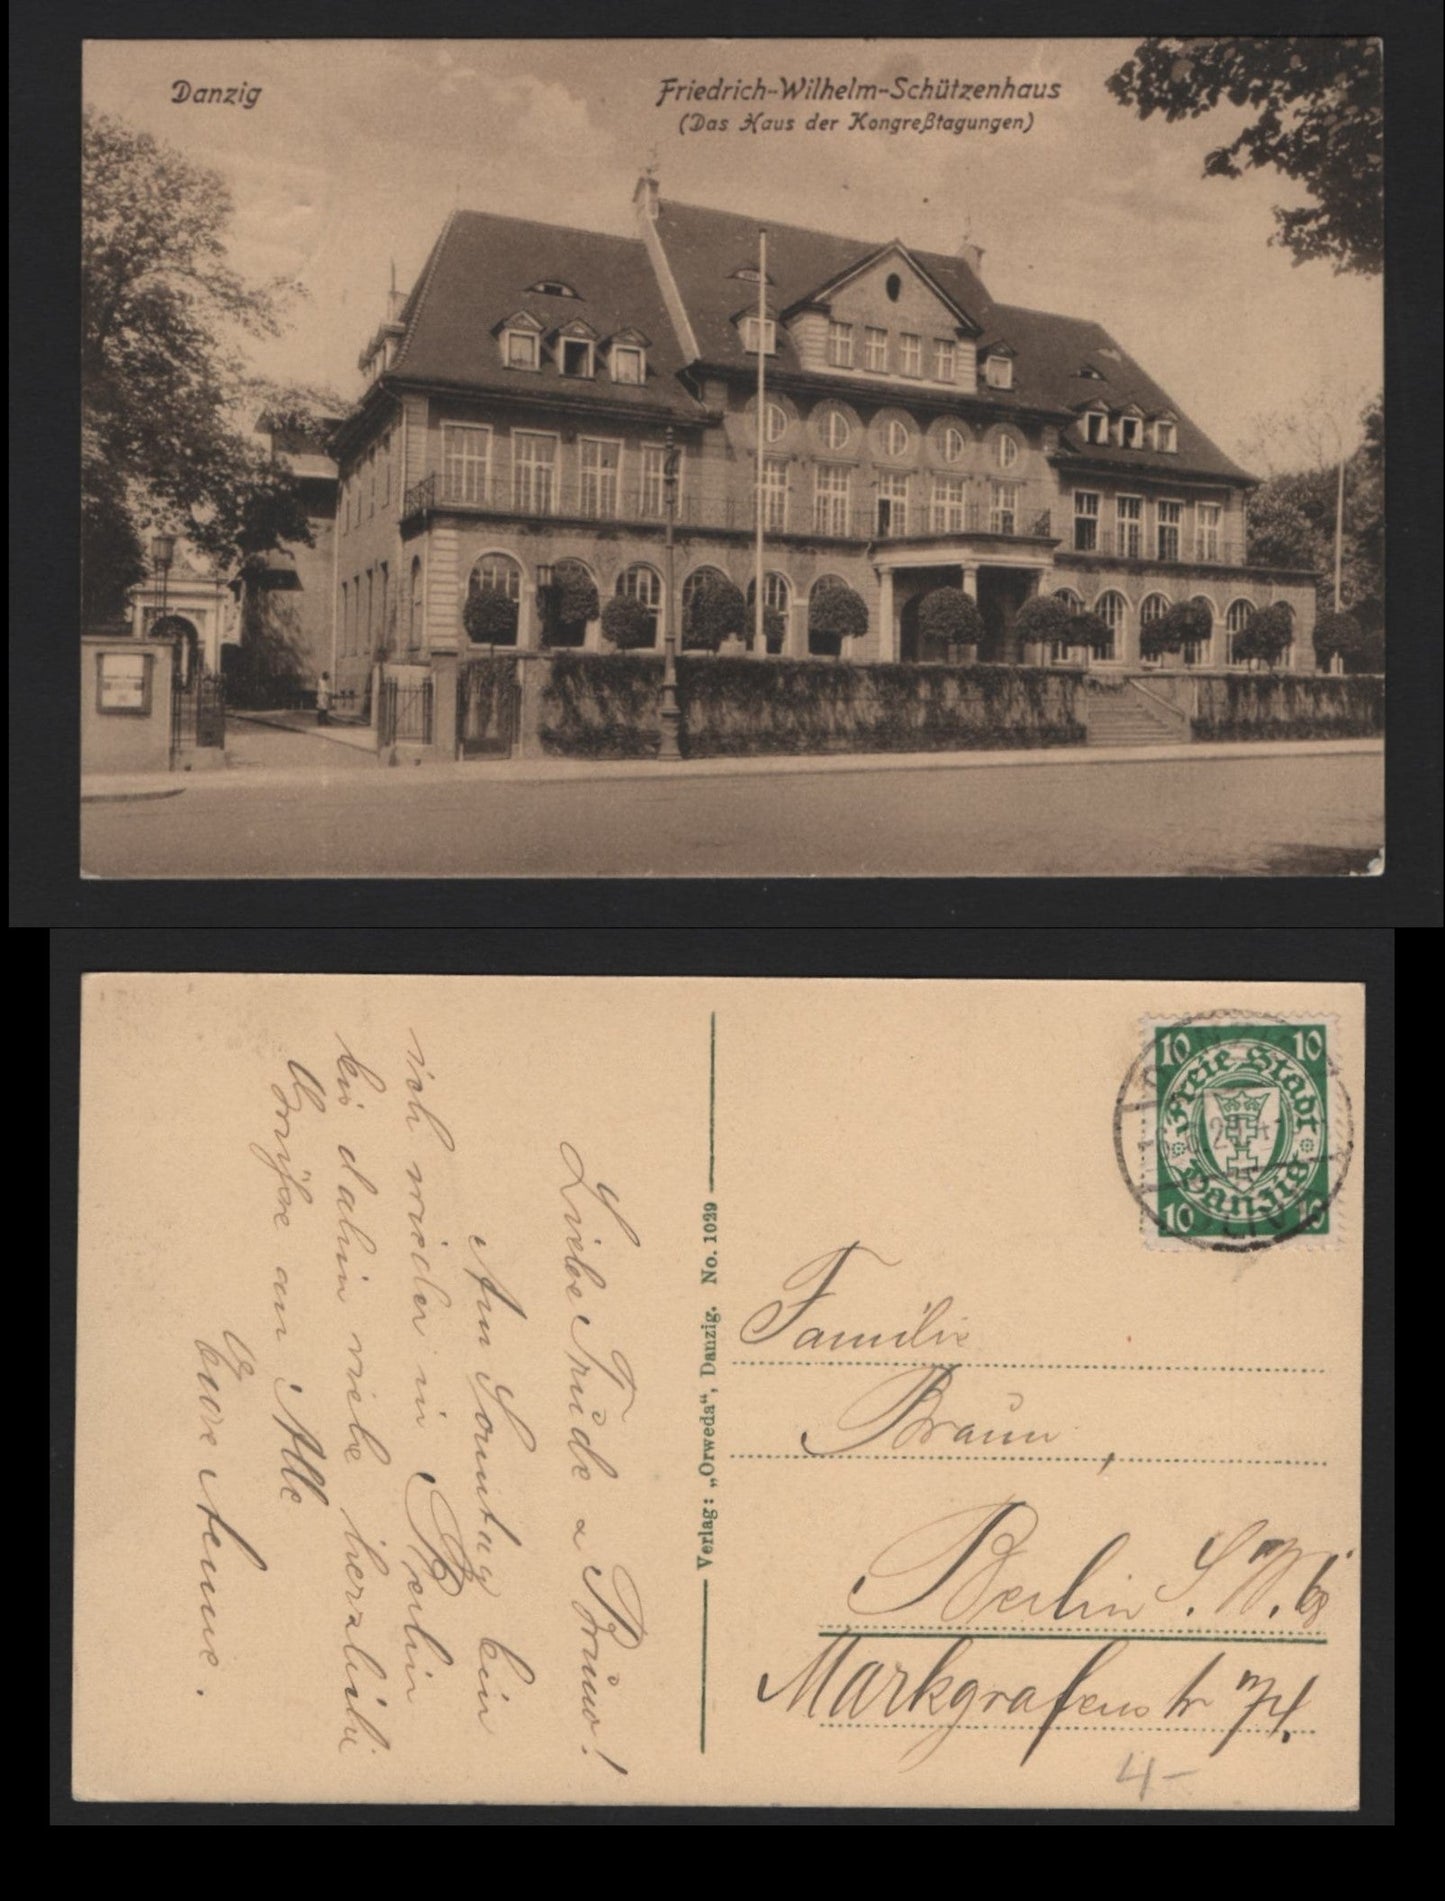 Danzig
Friedrich-Wilhelm-Schützenhaus
(Das Haus der Kongreßtagungen)
Liebe Trude u Bruno!
Am Sonntag bin
ich wieder in Berlin
bis dahin viele herzliche
Grüße an Alle
Eure Aenne.
Verlag: „Orweda“, Danzig. No. 1029
10 10
Freie Stadt
Danzig
10 10
Familie
Braun,
Berlin S.W. 68
Markgrafenstr 74.
4-